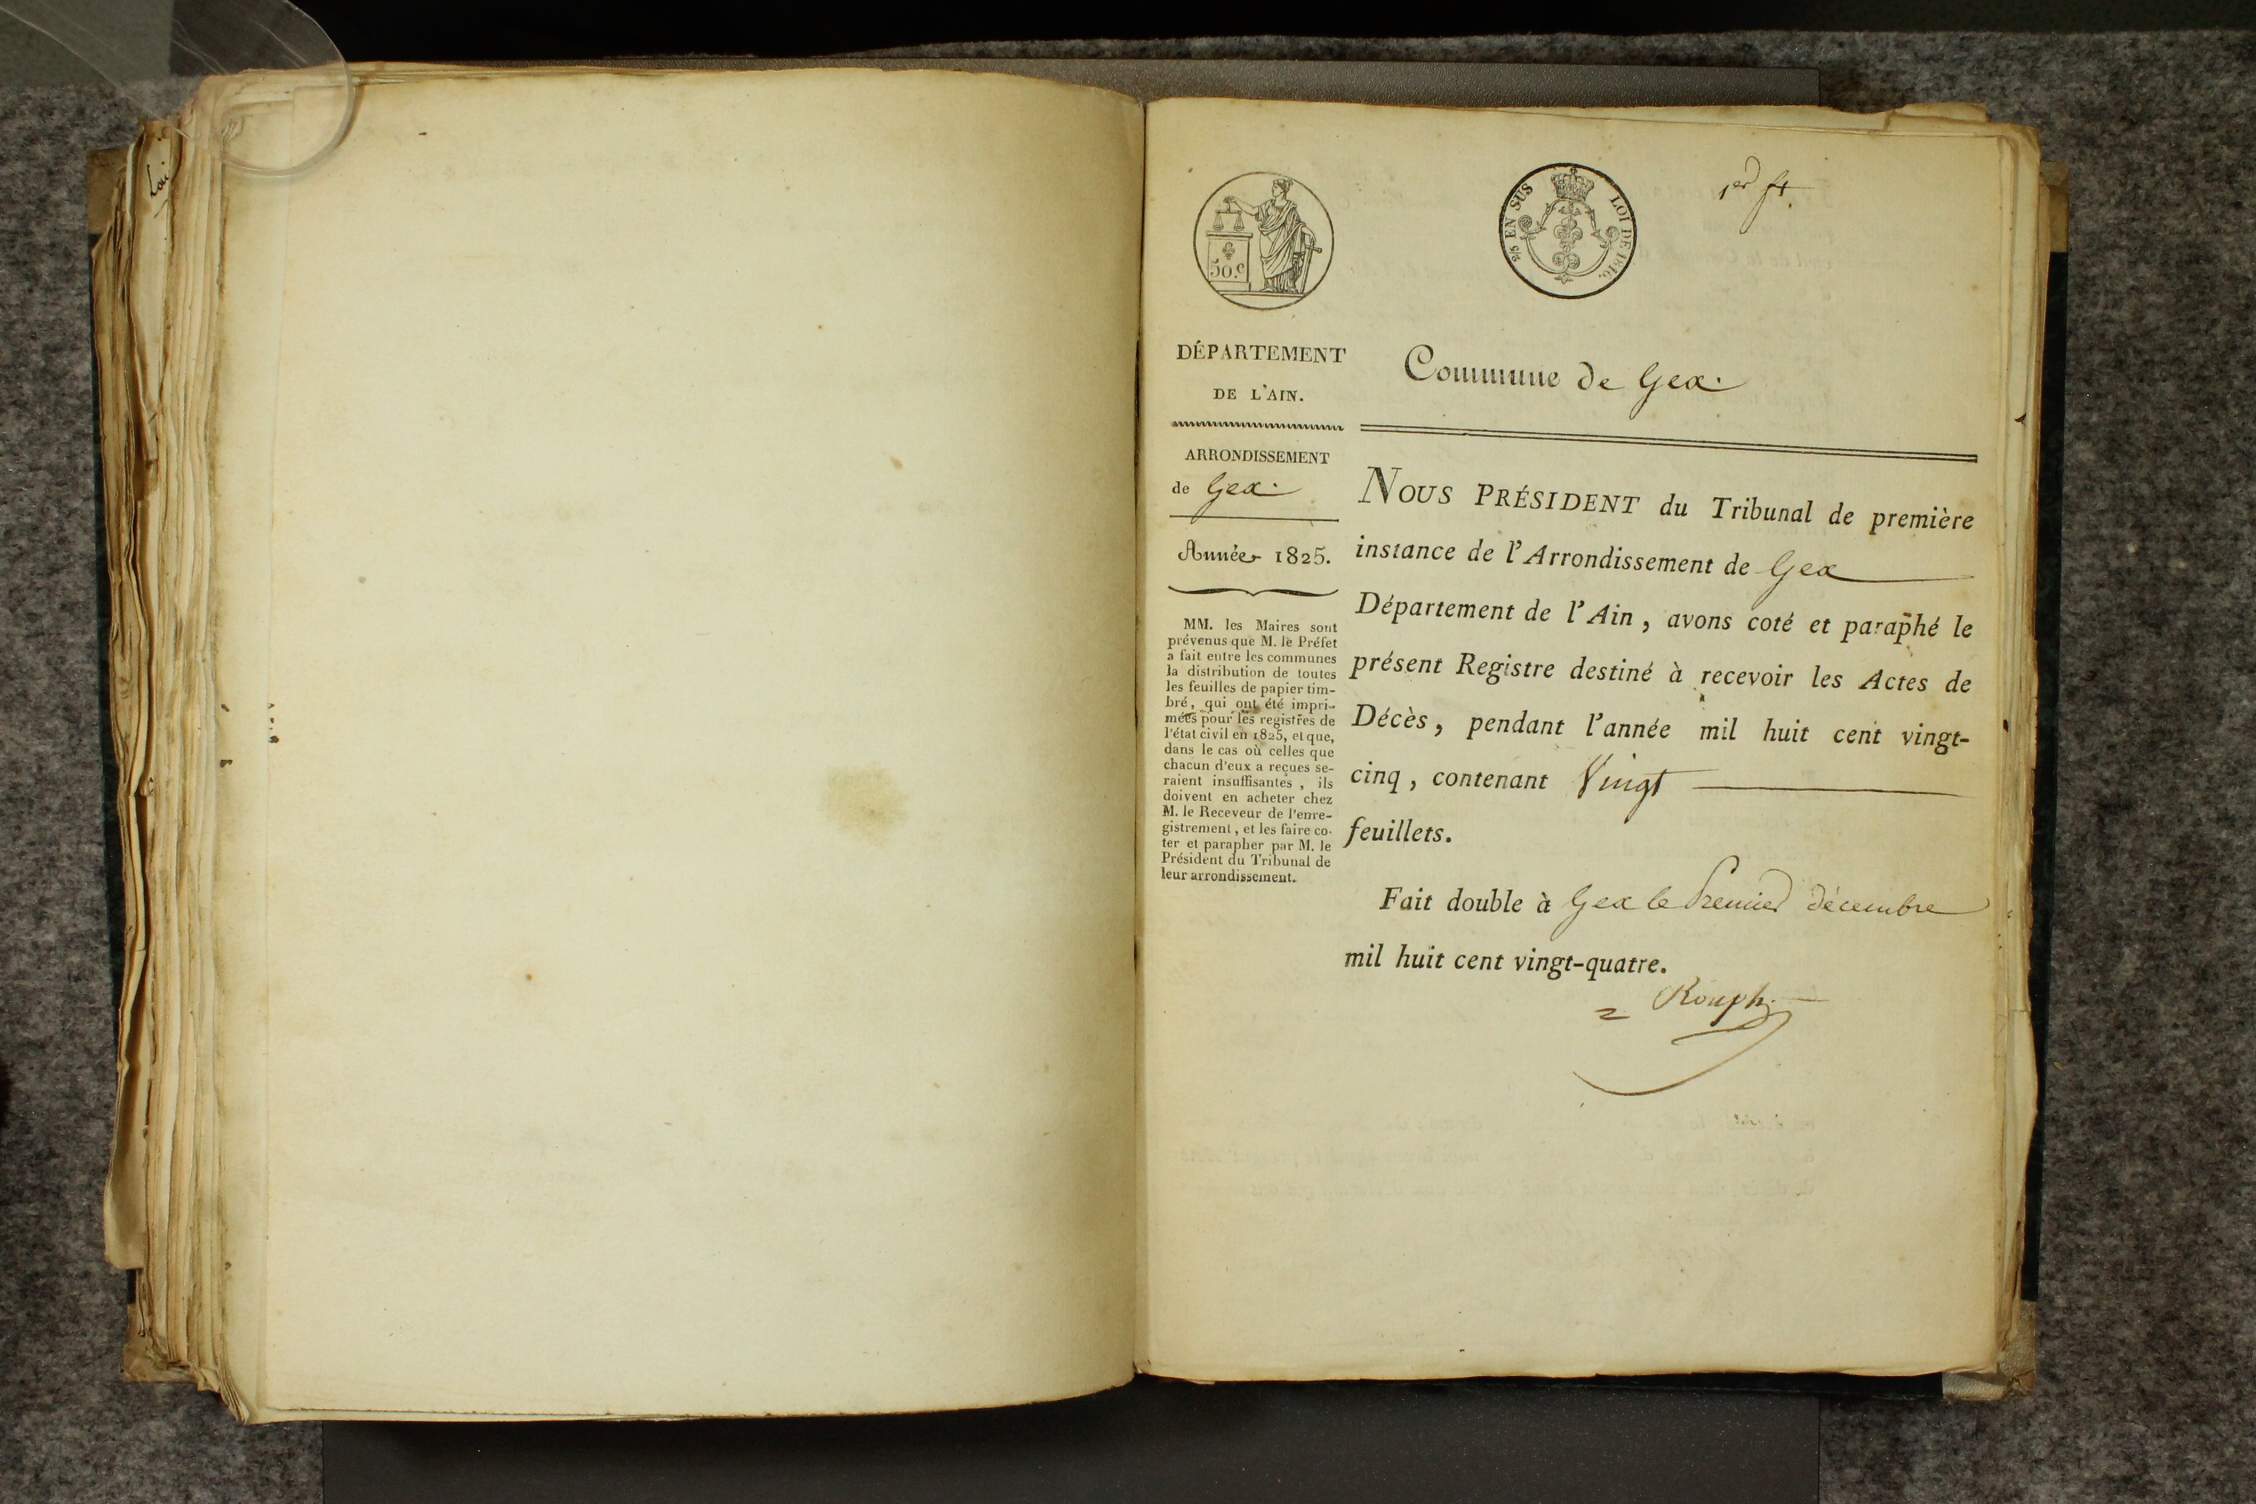 Loi
50.c
2/5 EN SUS LOI DE 1816.
1er ft.
DÉPARTEMENT
DE L'AIN.
Commune de Gex.
ARRONDISSEMENT
de Gex.
Année 1825.
MM. les Maires sont
prévenus que M. le Préfet
a fait entre les communes
la distribution de toutes
les feuilles de papier tim-
bré, qui ont été impri-
mées pour les registres de
l'état civil en 1825, et que,
dans le cas où celles que
chacun d'eux a reçues se-
raient insuffisantes, ils
doivent en acheter chez
M. le Receveur de l'enre-
gistrement, et les faire co-
ter et parapher par M. le
Président du Tribunal de
leur arrondissement.
NOUS PRÉSIDENT du Tribunal de première
instance de l'Arrondissement de Gex
Département de l'Ain, avons coté et paraphé le
présent Registre destiné à recevoir les Actes de
Décès, pendant l'année mil huit cent vingt-
cinq, contenant Vingt
feuillets.
Fait double à Gex le Premier décembre
mil huit cent vingt-quatre.
Rouph